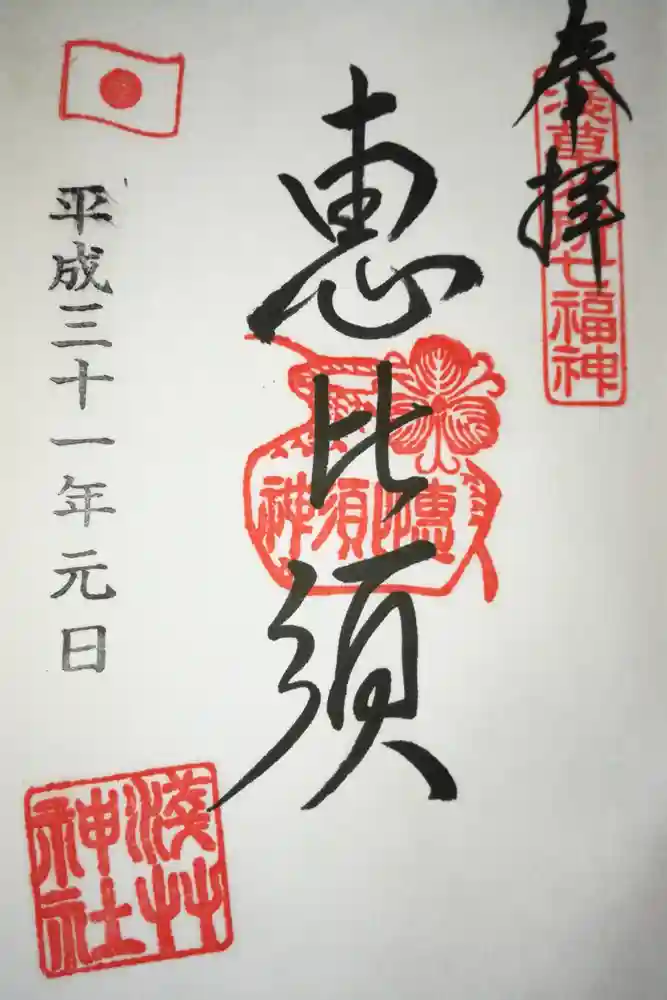 奉拝
浅草名所七福神
恵比須
恵比須神
平成三十一年元日
淺草神社